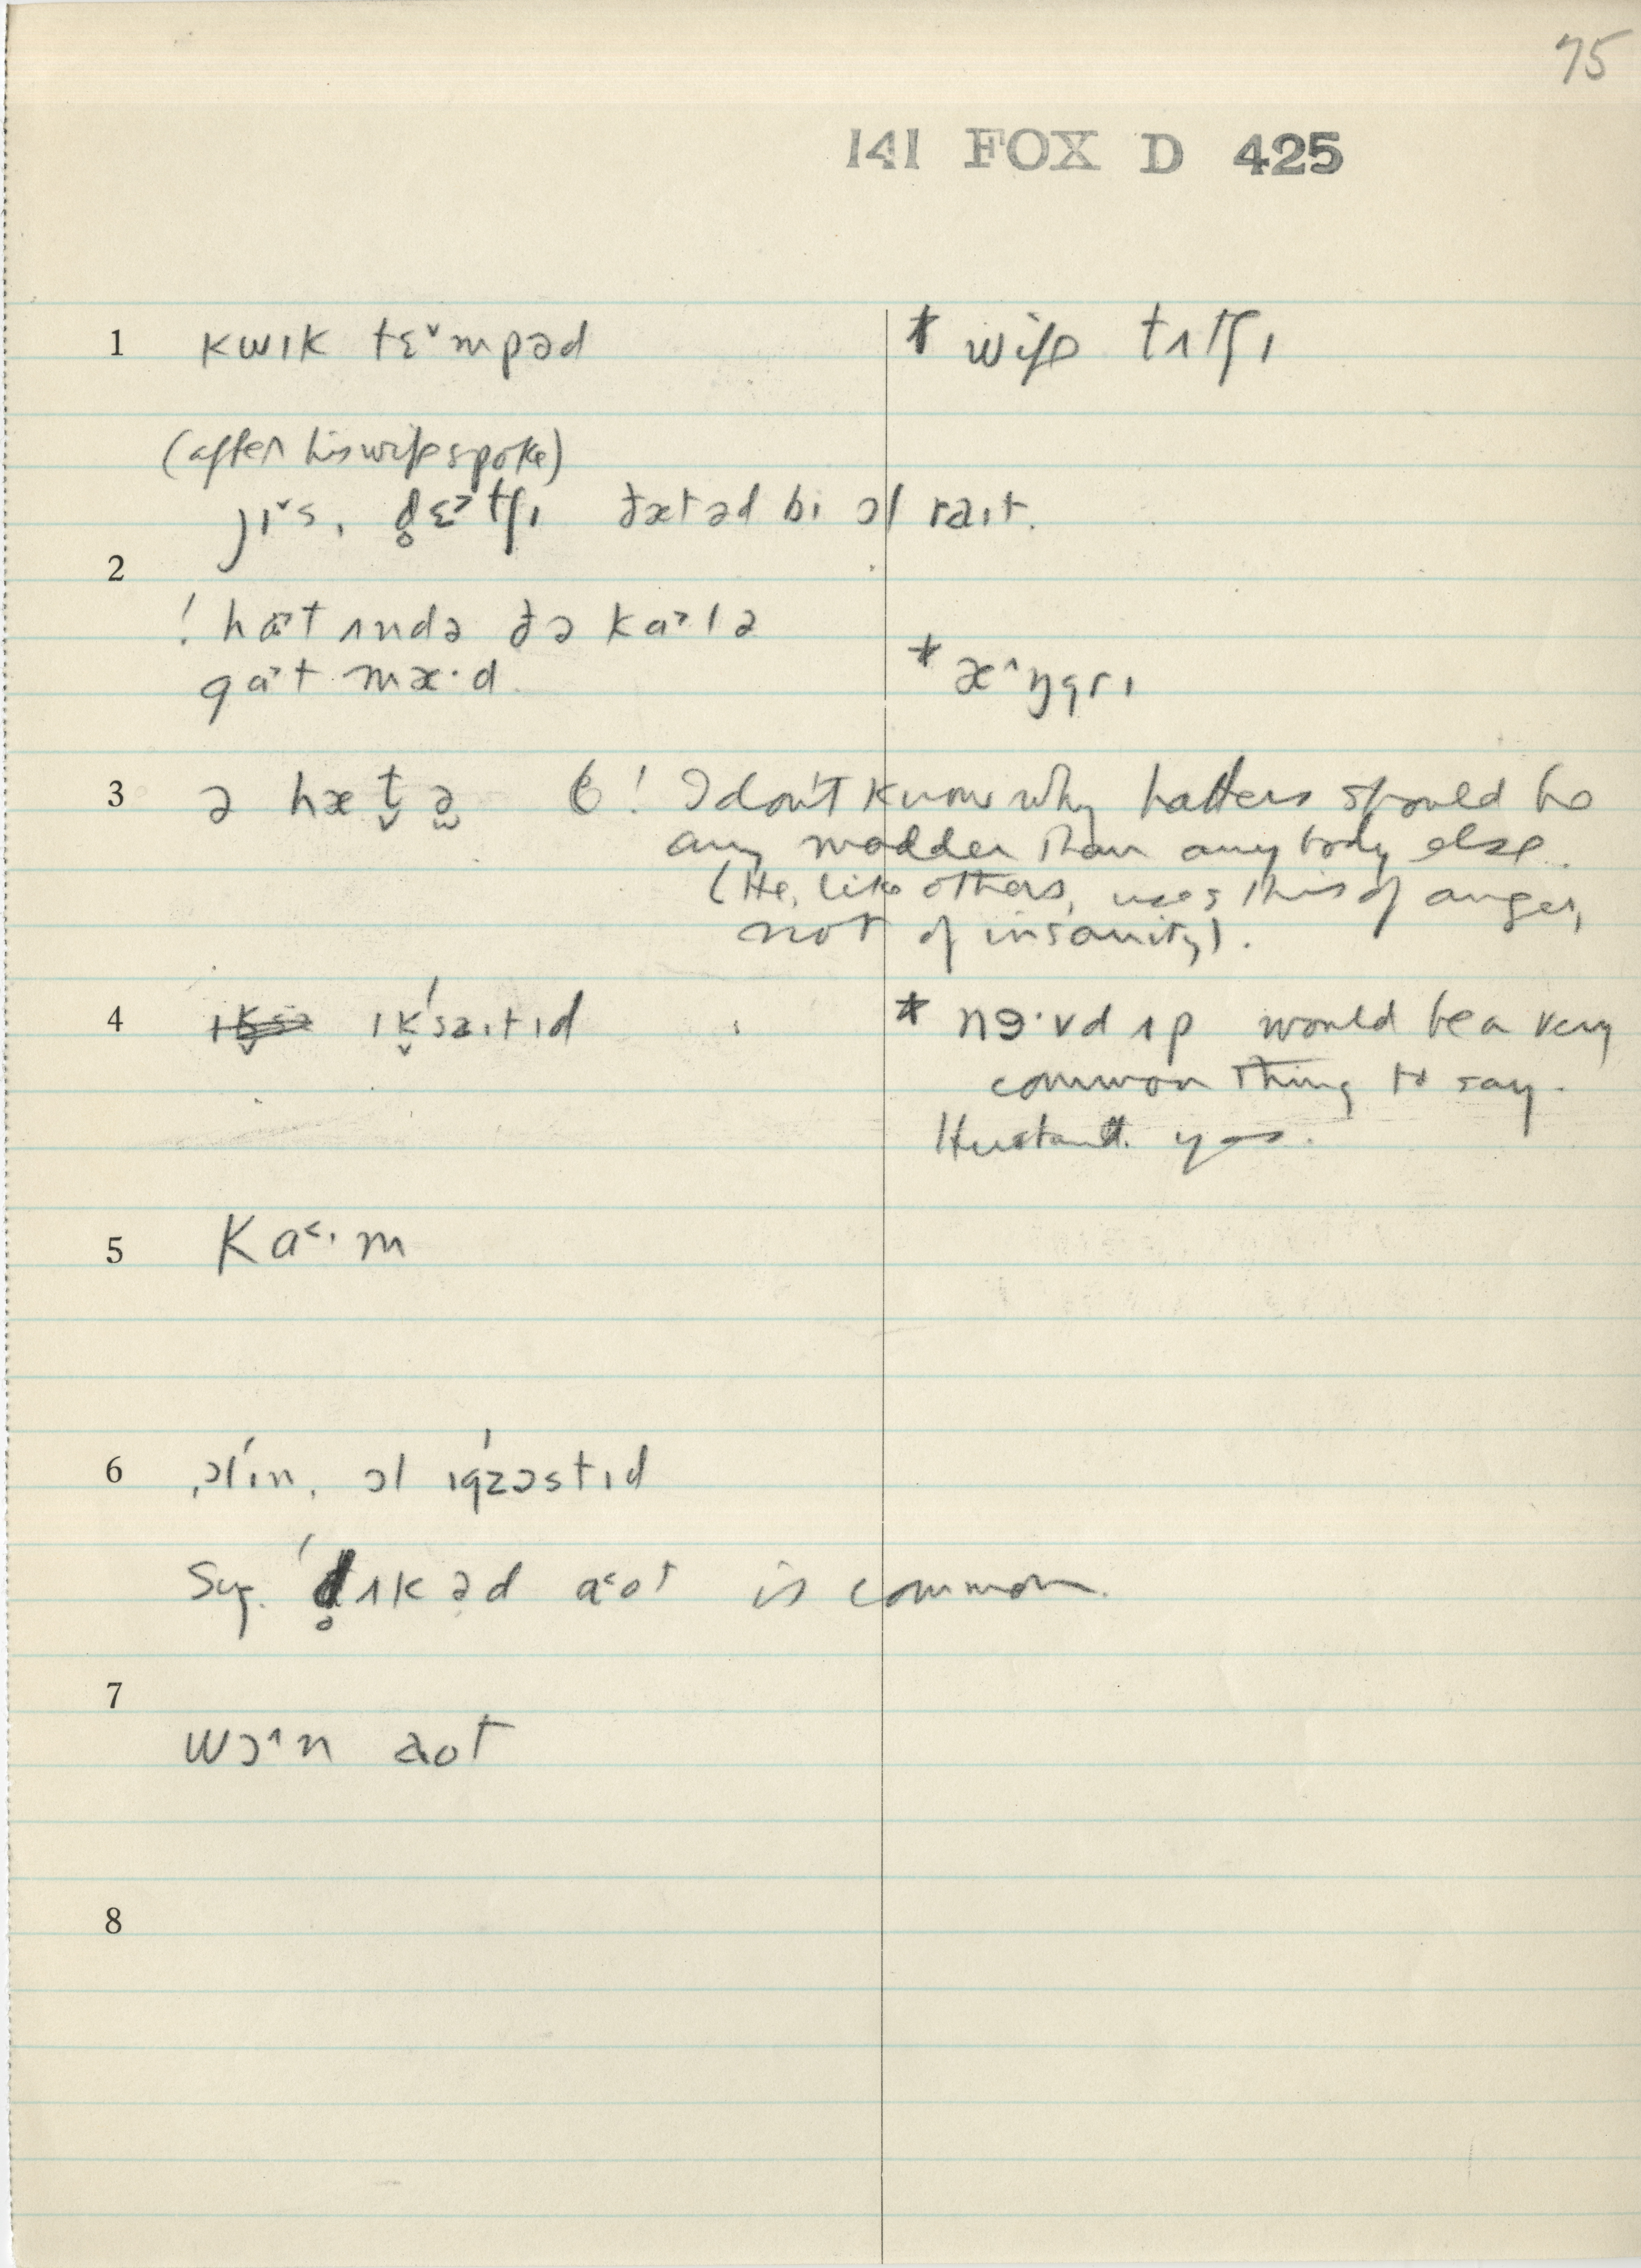 75
141 FOX D 425
1 kwɪk tɛ˅mpəd * wife tʌtʃɪ
(after his wife spoke)
jɪ˅s, d̥ɛ˃tʃɪ ðæt əd bɪ ɔl raɪt.
2
! hɑ˃t ʌndə ðə kɑ˃lə
gɑ˃t mæ·d. * æ˄ŋgrɪ
3 ə hæt̬ə ! I don't know why hatters should be
any madder than anybody else.
(He, like others, uses this of anger,
not of insanity).
4 ɪk̬'saɪtɪd * nɜ·vd ʌp would be a very
common thing to say.
Husband. yes.
5 ka˂·m
6 ɔl ɪn, ɔl ɪgzɔstɪd
Sug. 'd̥ʌkəd a˂ot is common.
7
wɔ˄n aot
8